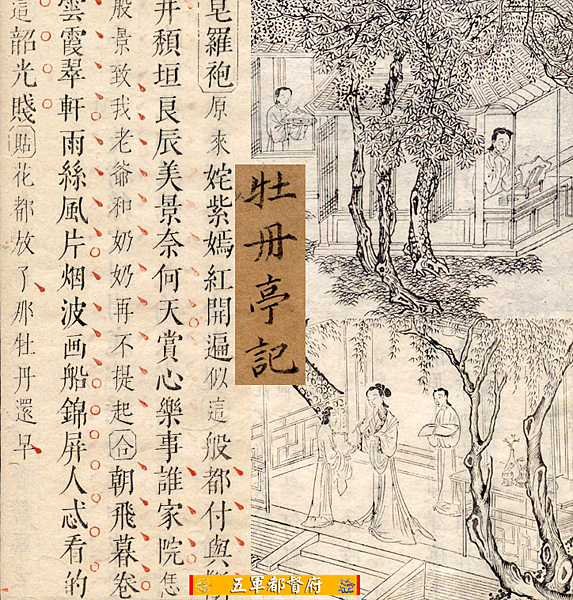 牡丹亭記
皂羅袍原來姹紫嫣紅開遍似這般都付與
井頹垣良辰美景奈何天賞心樂事誰家院恁
般景致我老爺和奶奶再不提起合朝飛暮卷
雲霞翠軒雨絲風片烟波画船錦屏人忒看的
這韶光賤貼花都放了那牡丹還早
五軍都督府